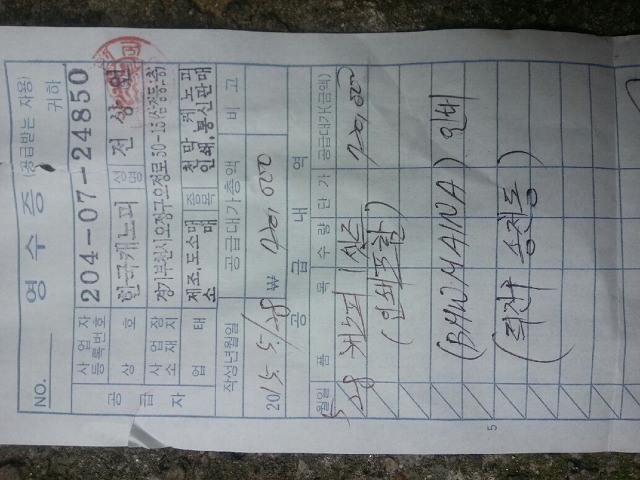 NO.
영 수 증 (공급받는 자용)
귀하
공 급 자
사 업 자 등록번호 204-07-24850
상 호 한국캐노피 성명 전상원
사 업 장 소 재 지 경기부천시오정구오정로50-15(삼정동-층)
업 태 제조,도소매 소매 종목 천막,캐노피 인쇄,통신판매
작성년월일 공급대가총액 비 고
2015. 5/28 ₩ 720,000
공 급 내 역
월일 품 목 수 량 단 가 공급대가(금액)
5/28 캐노피 1 720,000
(인쇄포함)
(BHWMAINA) 인쇄
5